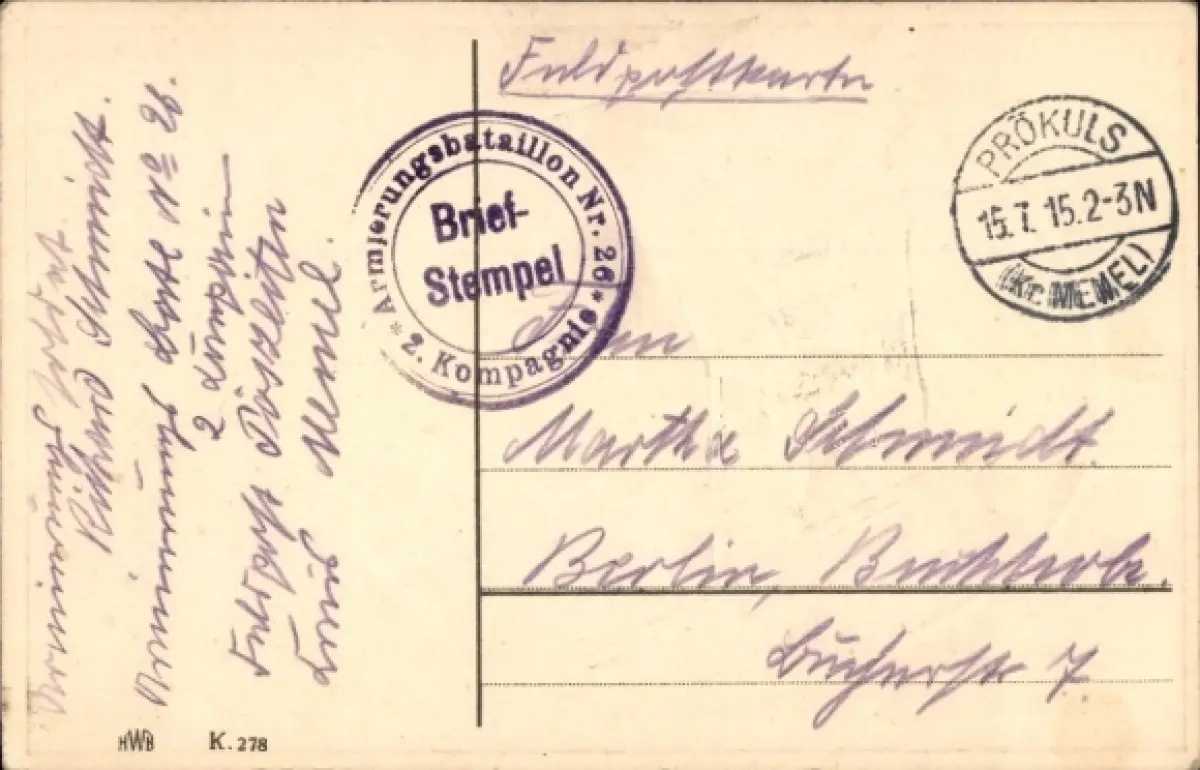 Feldpostkarte
Armierungsbataillon Nr. 26
Brief-
Stempel
* 2. Kompagnie *
PRÖKULS
15.7.15.2-3N
(Kr. MEMEL)
Frau
Martha Schmidt.
Berlin,
7
Richard Schmidt.
Batt. No 26.
2 Kompagnie
Feldpost Pöszeiten
Kreis Memel.
HWB K.278